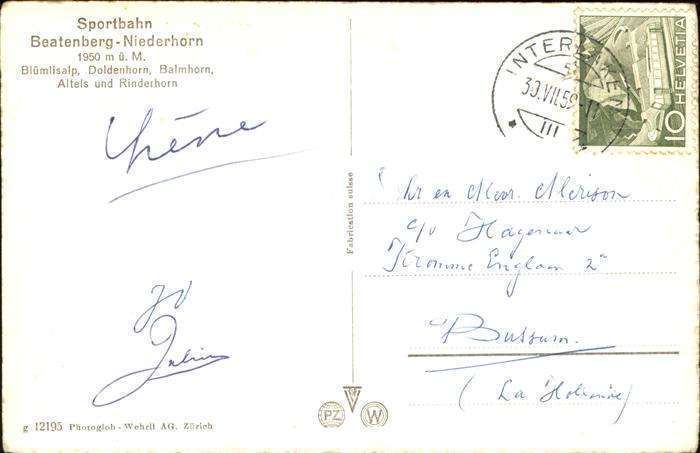 Sportbahn
Beatenberg-Niederhorn
1950 m ü. M.
Blümlisalp, Doldenhorn, Balmhorn,
Altels und Rinderhorn
INTERLAKEN
30.VII.5
III
HELVETIA
10
Fabrication suisse
en Mevr.
c/o Hagenaar
Kromme Englaan 2
Bussum.
(La Hollande)
Julius
PZ W
g 12195 Photoglob-Wehrli AG. Zürich